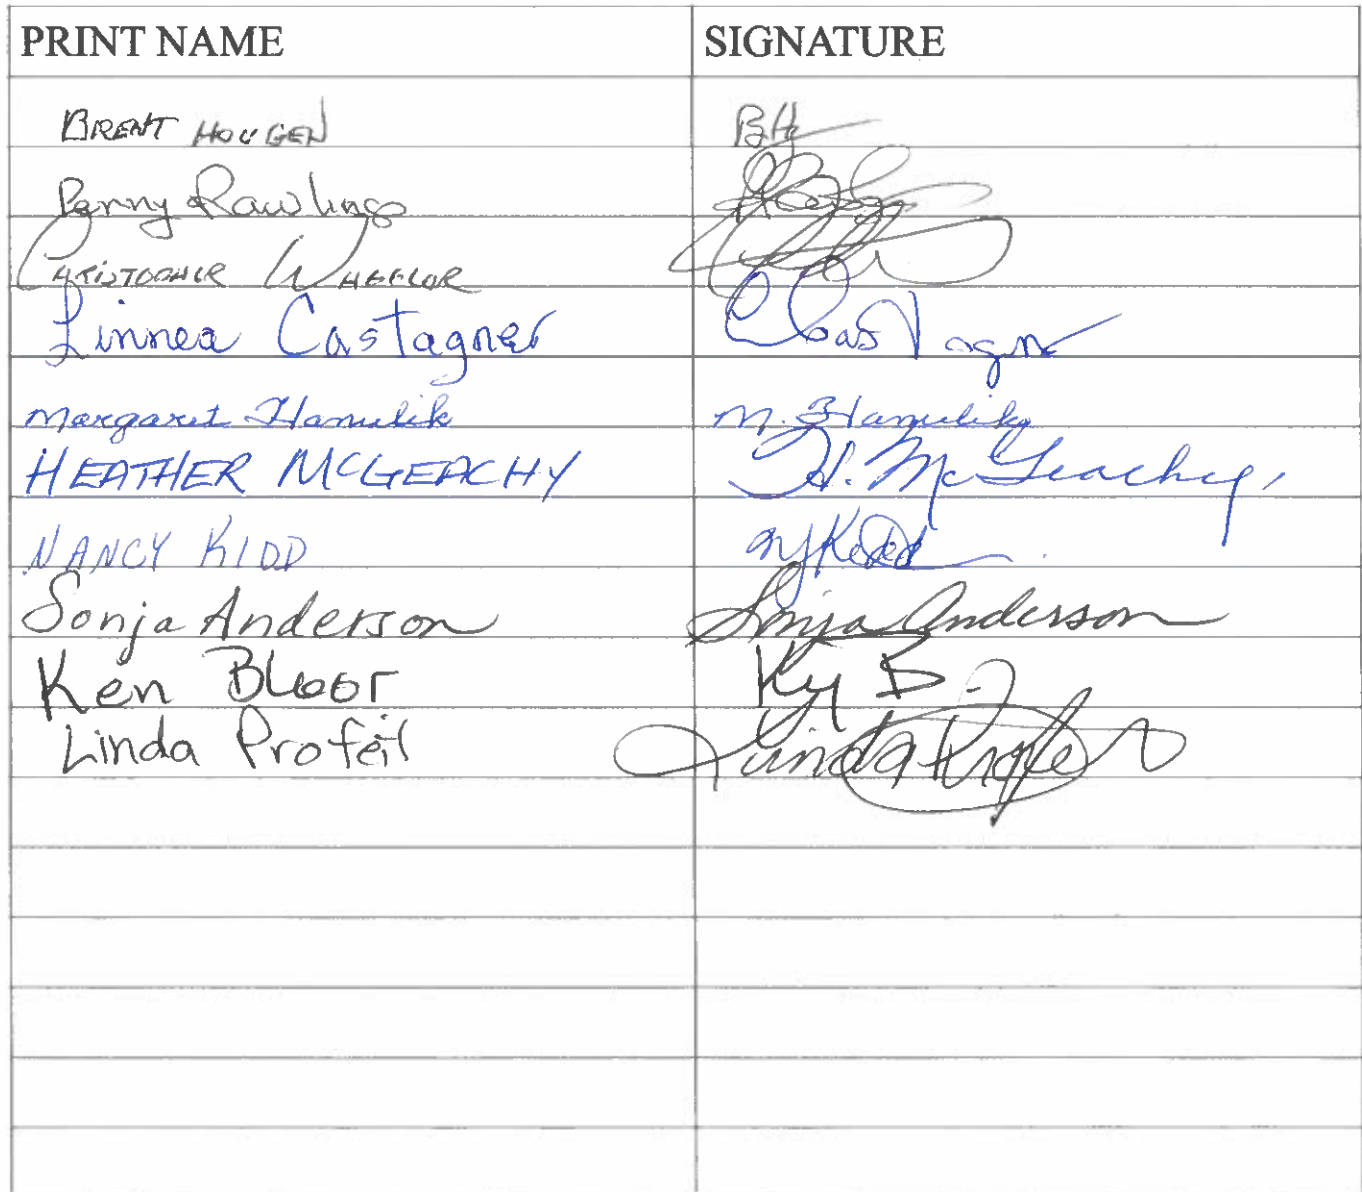 PRINT NAME SIGNATURE
BRENT HOUGEN BH
Penny Rawlings
CHRISTOPHER WHEELOR
Linnea Castagner Castagner
Margaret Hanulik M. Hanulik
HEATHER MCGEACHY H. McGeachy
NANCY KIDD NJKidd
Sonja Anderson Sonja Anderson
Ken Bloor
Linda Profeit Linda Profeit